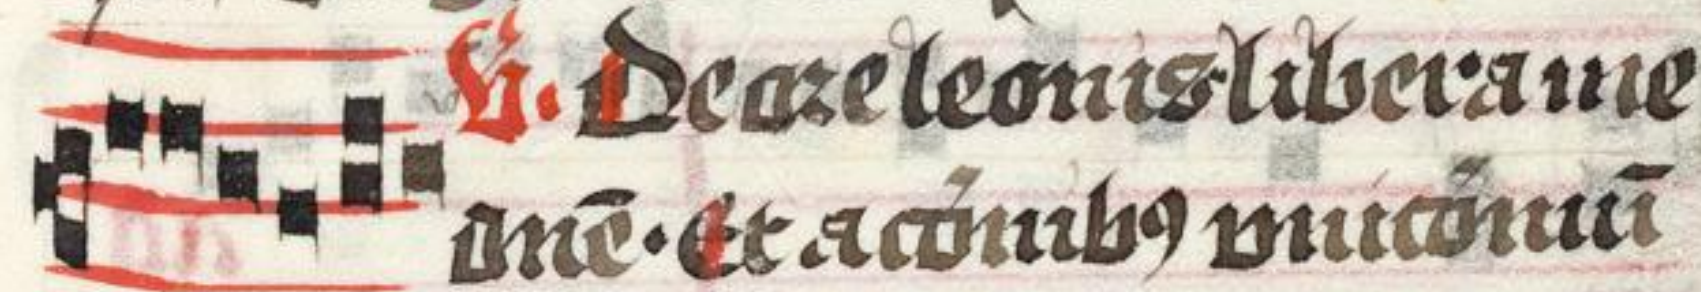 V. De ore leonis libera me
dne. Et a cornib9 unicorniu